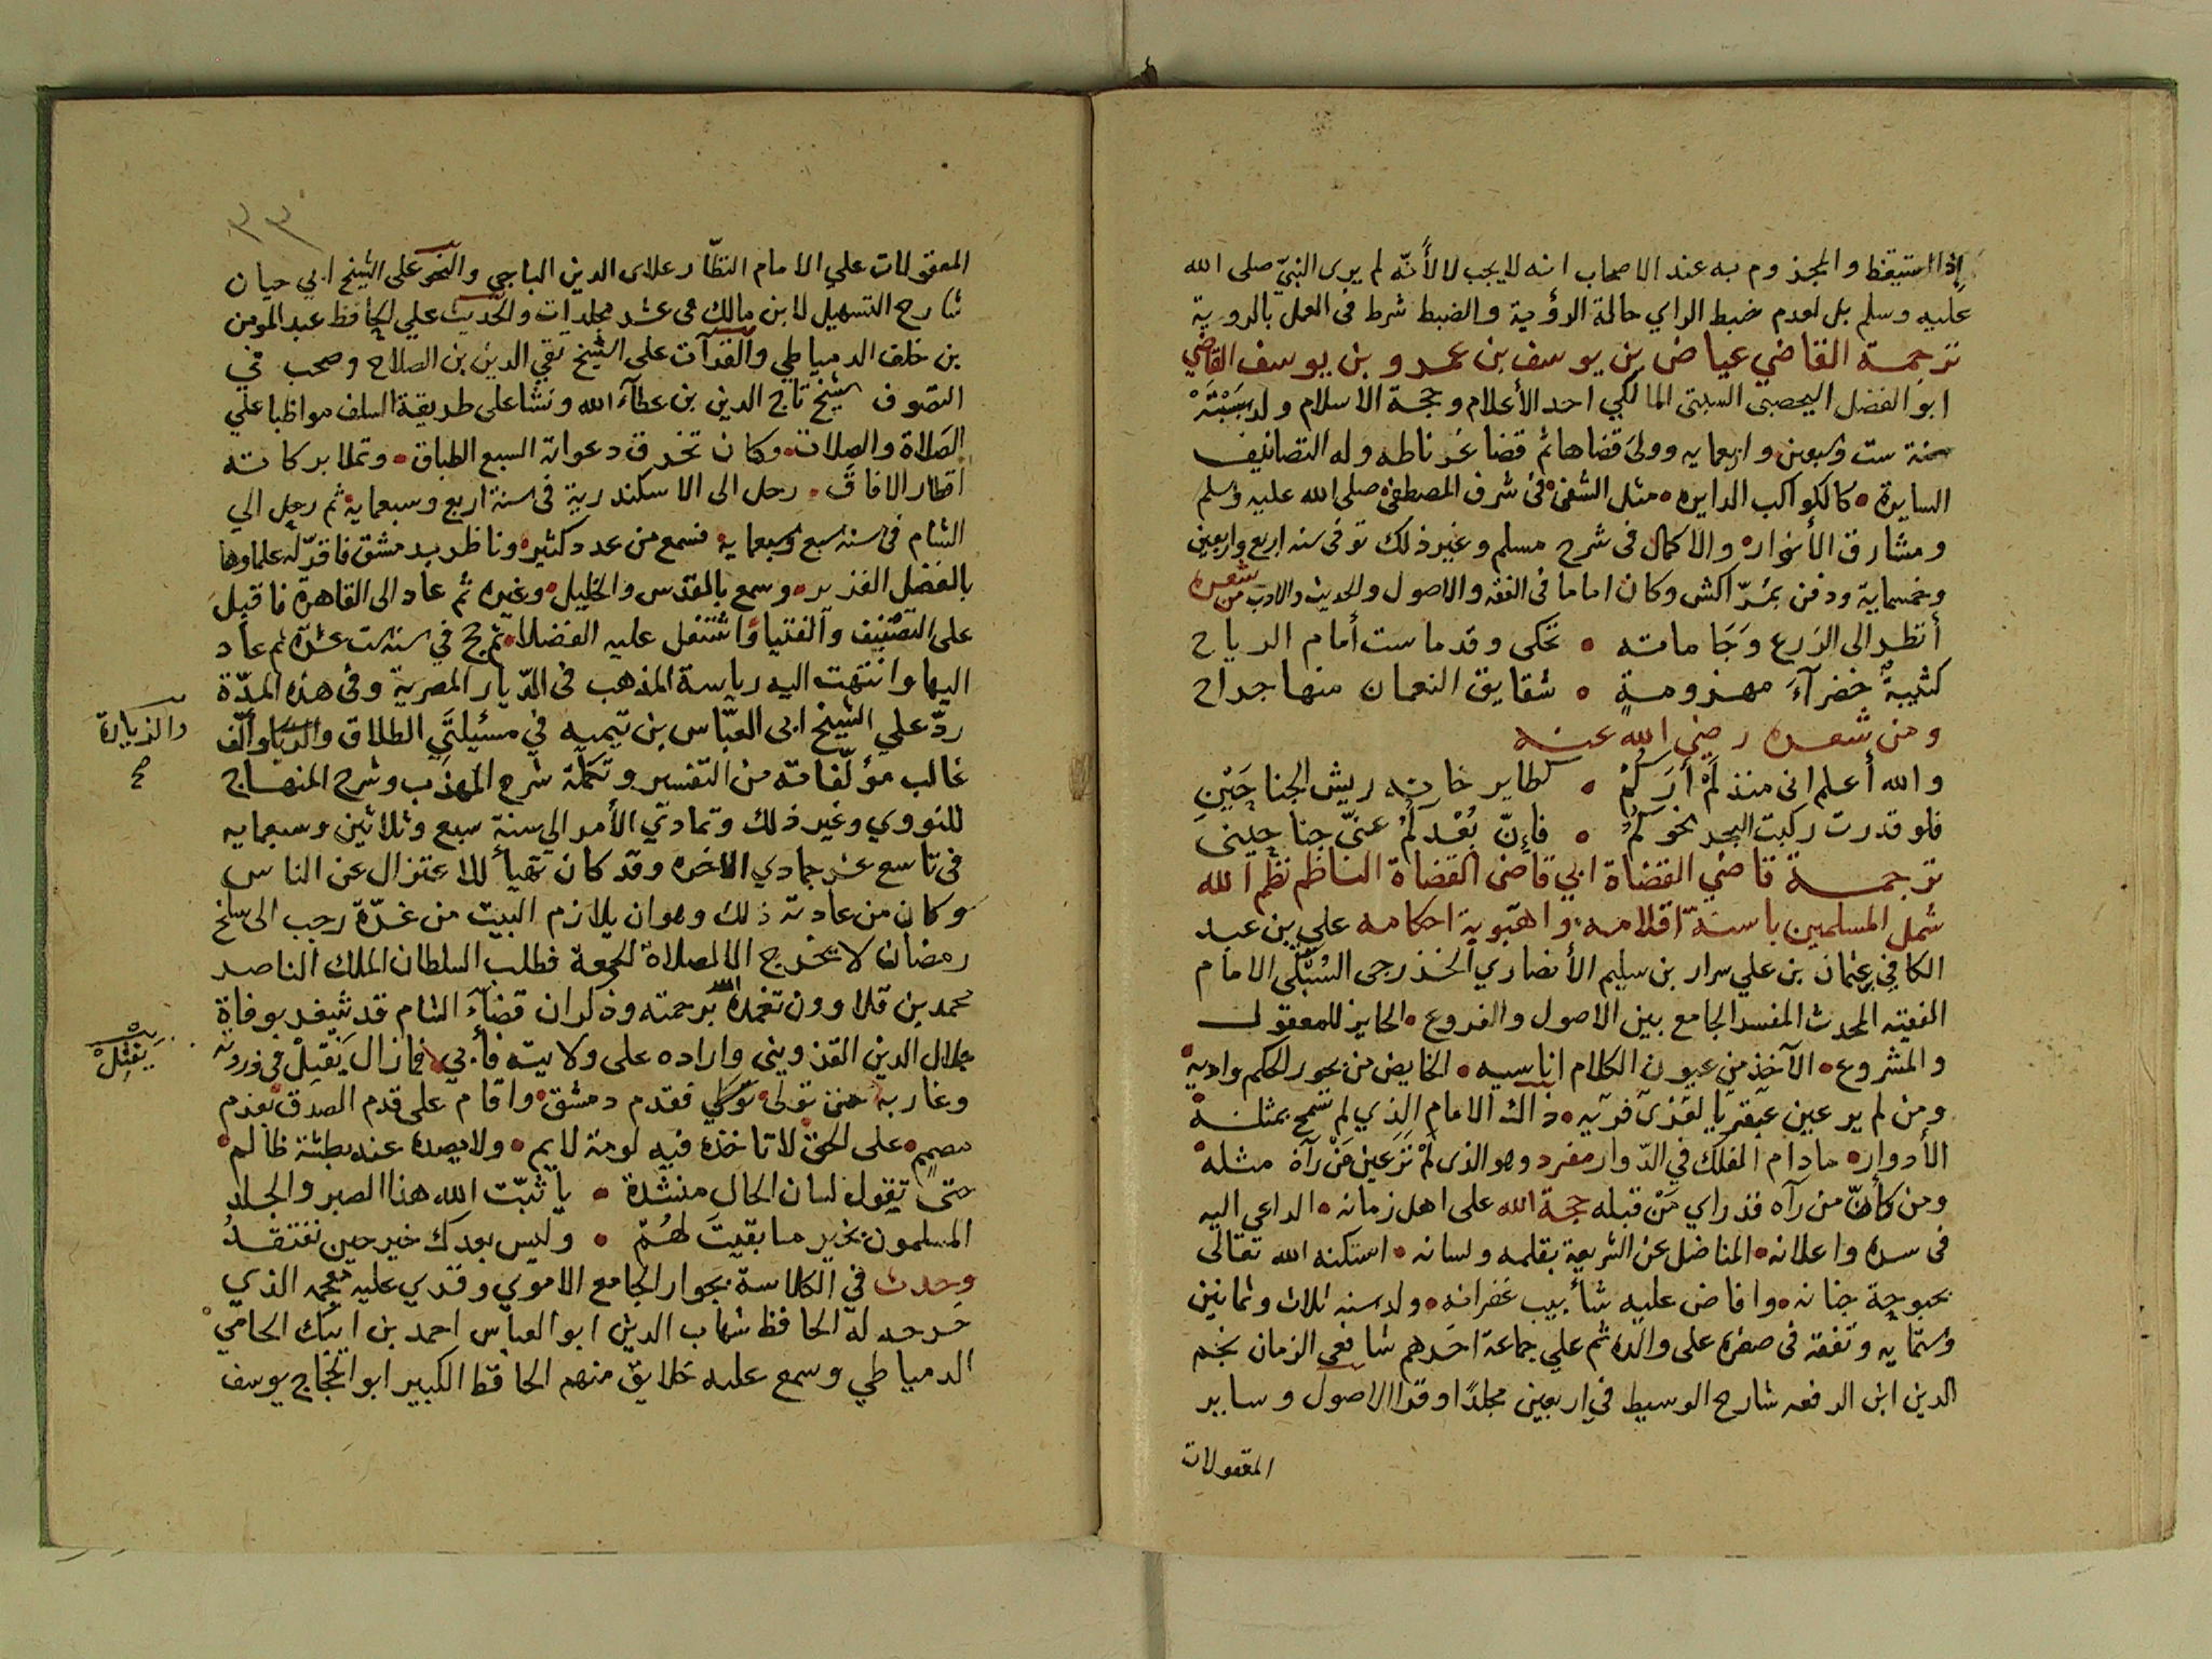 إذا استيقظ والمجزوم به عند الاصحاب انه لا يجب لا لأنّه لم يرى النبيّ صلى الله
عليه وسلم بل لعدم ضبط الراي حالة الرؤية والضبط شرط فى العمل بالروية
ترجمة القاضي عياض بن يوسف بن عمرو بن يوسف القاضي
ابو الفضل اليحصبى السبتى المالكي احد الأعلام وحجة الاسلام ولد بسَبْتَهْ
سنة ست وسبعين واربعمايه وولى قضاها ثم قضا غرناطه وله التصانيف
السايرة كالكواكب الدايره مثل الشفى فى شرف المصطفى صلى الله عليه وسلم
ومشارق الأنوار والاكمال فى شرح مسلم وغير ذلك توفى سنه اربع واربعين
وخمسماية ودفن بمَرّاكش وكان اماما فى الفقه والاصول والحديث والادب من شعره
أنظر الى الزرع وَجَاماته تحكى وقد ماست أمام الرياح
كثيبةٌ خضرآءَ مهزومةٍ شقايق النعمان منها جراح
ومن شعره رضي الله عنه
والله أعلم انى منذ لَمْ أَرَكُمْ كطاير خانه ريش الجناحَيْنِ
فلو قدرت ركبت البحر نحوكُم فإنّ بُعْدكُمُ عنّي جنا حيْنى
ترجمة قاضي القضاة ابي قاضى القضاة الناظم نظم الله
شمل المسلمين باسنّة اقلامه واهّبوية احكامه علي بن عبد
الكافي عثمان بن علي سرار بن سليم الأنصاري الخزرجى السُبْكي الامام
الفقيه المحدث المفسر الجامع بين الاصول والفروع الحايز للمعقول
والمشروع الآخذ من عيون الكلام اناسيه الخايض من بحور الحكم واديه
ومن لم ير عين عبقريا يفرى فريه ذاك الامام الذي لم تسمح بمثله
الأدوار مادام الفلك في الدّوار مفرد وهو الذى لَمْ تَرَ عين مَنْ رآه مثله
ومن كأنّ من رآه قد راي مَنْ قبله حجة الله على اهل زمانه الداعي اليه
فى سره واعلانه المناضل عن الشريعة بقلمه ولسانه اسكنه الله تعالى
بحبوحة جنانه وافاض عليه شأبيب غفرانه ولد سنه ثلاث وثمانين
وستمايه وتفقه فى صغره على والده ثم علي جماعة احدهم شافعي الزمان نجم
الدين ابن الرفعه شارح الوسيط في اربعين مجلدًا وقرا الاصول وساير
المعقولات
٣٣
المعقولات علي الامام النظّار علاى الدين الباجي والنحو على الشيخ ابي حيان
شارح التسهيل لابن مالك فى عشر مجلدات والحديث علي الحافظ عبد المومن
بن خلف الدمياطي والقرآت على الشيخ تقي الدين بن الصلاح وصحب في
التصوف الشيخ تاج الدين بن عطآء الله ونشا على طريقة السلف مواظبا علي
الصَلاة والصِلات وكان تخرق دعواته السبع الطباق وتملا بركاته
اقطار الافاق رحل الى الاسكندرية فى سنة اربع وسبعماية ثم رحل الي
الشام فى سنه سبع وسبعماية فسمع من عدد كثير وناظر بدمشق فاقرّ له علماوها
بالفضل الغزير وسمع بالمقدس والخليل وغيره ثم عاد الى القاهرة فاقبل
على التصنيف والفتيا واشتغل عليه الفضلا ثم حج في سنه ست عشرة ثم عاد
اليها وانتهت اليه رياسة المذهب فى الدّيار المصرية وفى هذه المدّة
ردّ علي الشيخ ابى العبّاس بن تيميه في مسئيلتَي الطلاق والربا وألّف
والزيارة
صح
غالب مؤلّفاته من التفسير وتكملة شرح المهذب وشرح المنهاج
للنووي وغير ذلك وتمادي الأمر الي سنة سبع وثلاثين وسبعمايه
فى تاسع عشر جمادي الاخره وقد كان تهيأ للاعتزال عن الناس
وكان من عادته ذلك وهو ان يلازم البيت من غرّة رجب الى سلخ
رمضان لا يخرج الا لصلاة الجمعة فطلب السلطان الملك الناصر
محمد بن قلاوون تغمده الله برحمته وذكر ان قضآءَ الشام قد شغر بوفاة
جلال الدين القزوينى واراده على ولايته فأبي فما زال يَفْتِلْ فى ذروته
يَفْتِلْ
وغاربه حتى تولى توكلي فقدم دمشق واقام على قدم الصدق بعزم
مصمم على الحق لا تاخذه فيه لومة لايم ولا يصده عنه بطشة ظالم
حتى تقول لسان الحال منشدة يا ثبّت الله هذا الصبر والجلد
المسلمون بخير ما بقيتَ لهُمُ وليس بعدك خير حين تفتقدُ
وحدث في الكلاسة بجوار الجامع الاموي وقري عليه معجمه الذي
خرجه له الحافظ شهاب الدين ابو العباس احمد بن ايبك الحامي
الدمياطي وسمع عليه خلايق منهم الحافظ الكبير ابو الحجاج يوسف